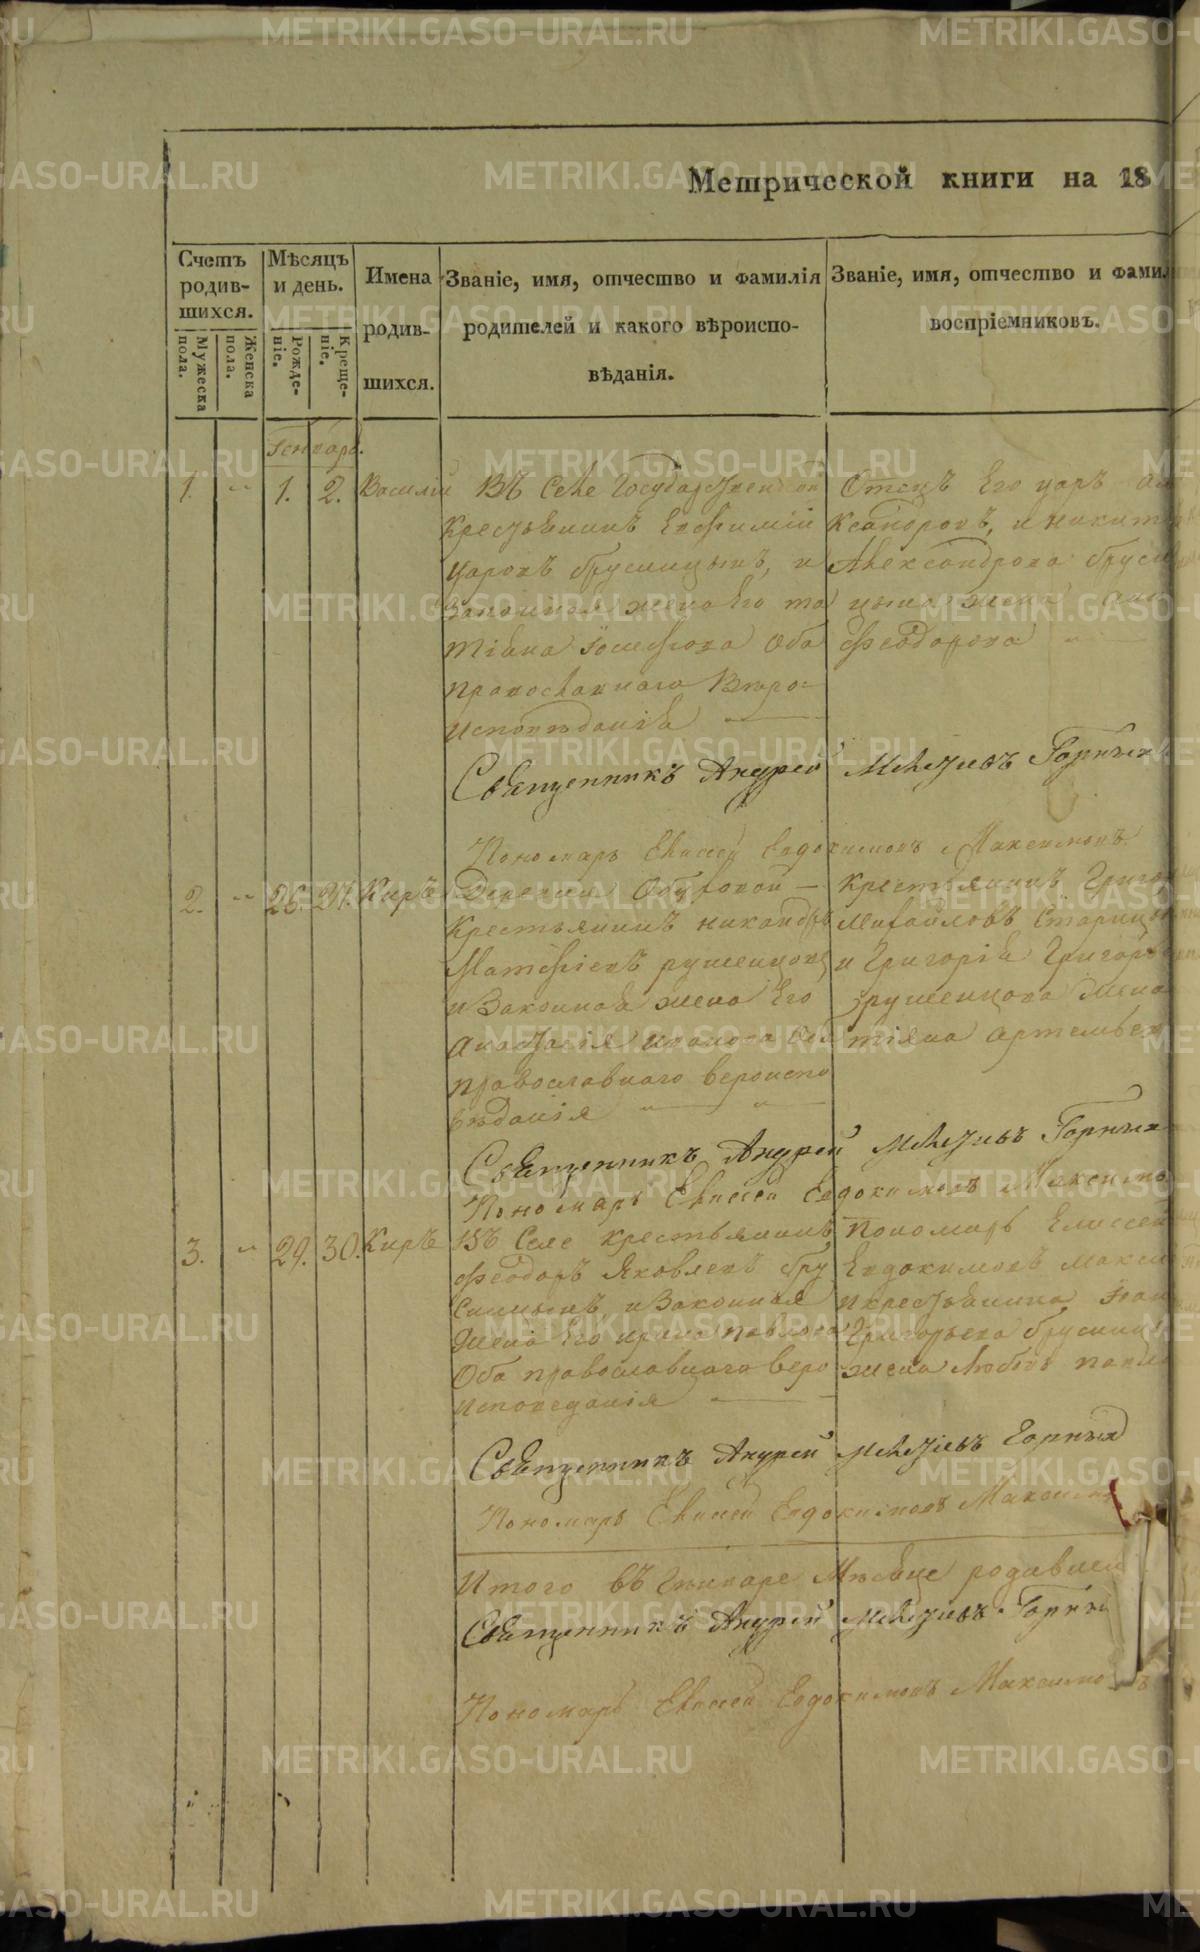 Метрической книги на 18
Счетъ родив-шихся.
Мужеска пола.
Женска пола.
Мѣсяцъ и день.
Рожде-ніе.
Креще-ніе.
Имена родив-шихся.
Званіе, имя, отчество и фамилія
родителей и какого вѣроиспо-
вѣданія.
Званіе, имя, отчество и фамил
воспріемниковъ.
Генварь.
1. " 1. 2. Василій
Въ Селе Государственной
Крестьянинъ Евфимій
Уаровъ Брусницынъ, и
Законная жена Его та
тіана Іосифова Оба
Православнаго Вѣро-
исповѣданія
Отецъ Его уаръ Але
Ксандровъ, и никит
Александрова Брусн
цына жена
Феодорова
Священникъ Андрей Мелетіевъ Горныхъ
Пономарь Елисей Евдокимовъ Максимовъ.
2. " 26. 27. Киръ
Деревни Обуховой
Крестьянинъ никандръ
Матфіевъ рушенцовъ
и Законная жена Его
Анастасія иванова Оба
православнаго вероиспо
вѣданія
Крестьянинъ Григор
Михайловъ Старицы
и Григорія Григорье
рушенцова Жена
тіяна Артемьев
Священникъ Андрей Мелетіевъ Горныхъ
Пономарь Елисей Евдокимовъ Максимо
3. " 29. 30. Киръ
Въ Селе крестьянинъ
Феодоръ Яковлевъ бру
сницынъ, и Законная
Жена Его ирина павлова
Оба православнаго веро
исповеданія
Пономарь Елиссей
Евдокимовъ макси
и крестьянина Іван
Григорьева брусницы
жена Любовь павло
Священникъ Андрей Мелетіевъ Горныхъ
Пономарь Елисей Евдокимовъ Максимо
Итого въ Генваре Мѣсяце родивших
Священникъ Андрей Мелетіевъ Горных
Пономарь Елисей Евдокимовъ Максимовъ
METRIKI.GASO-URAL.RU